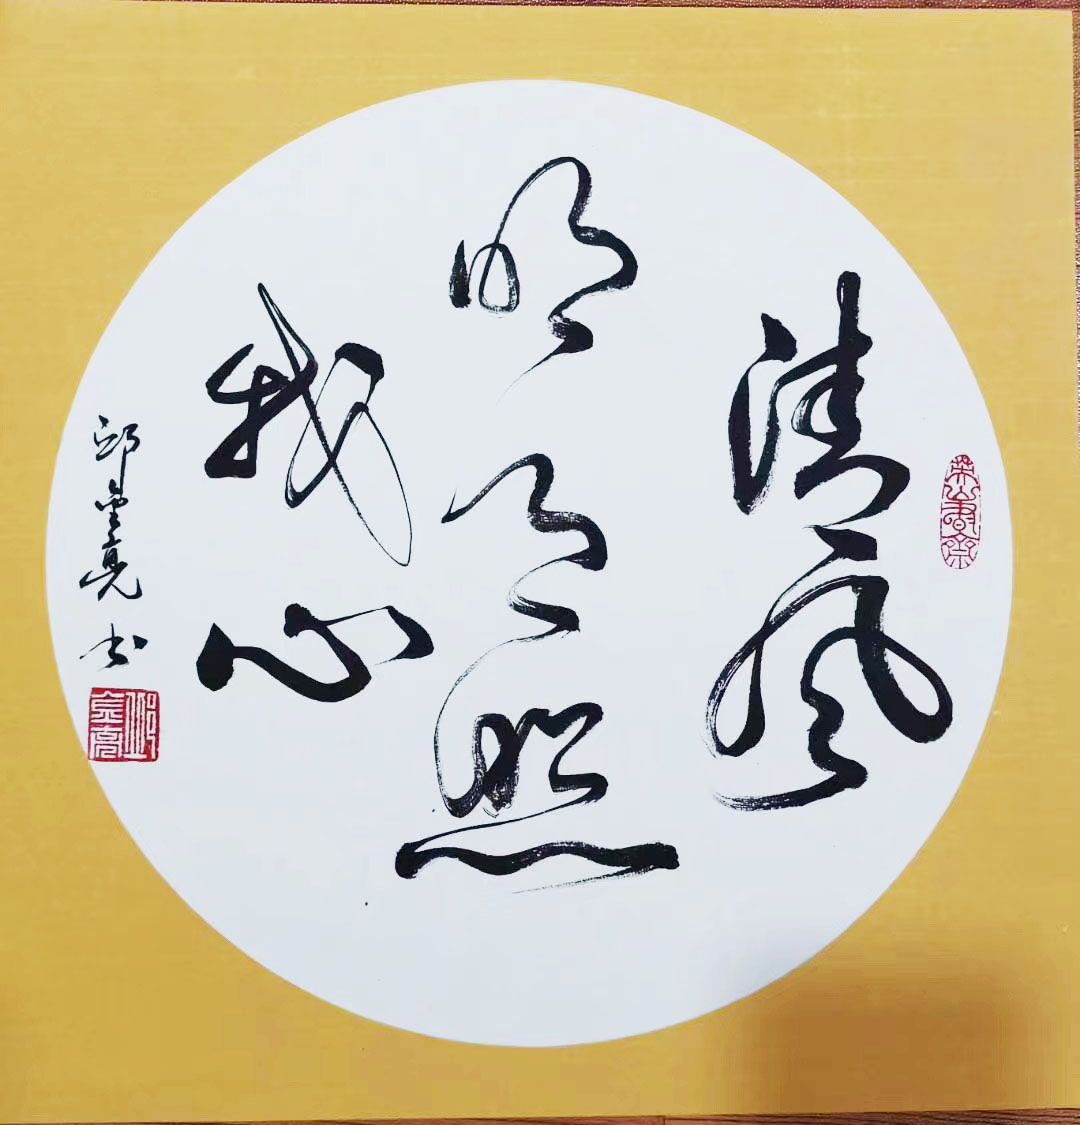 清风
明月照
我心
邱金亮书